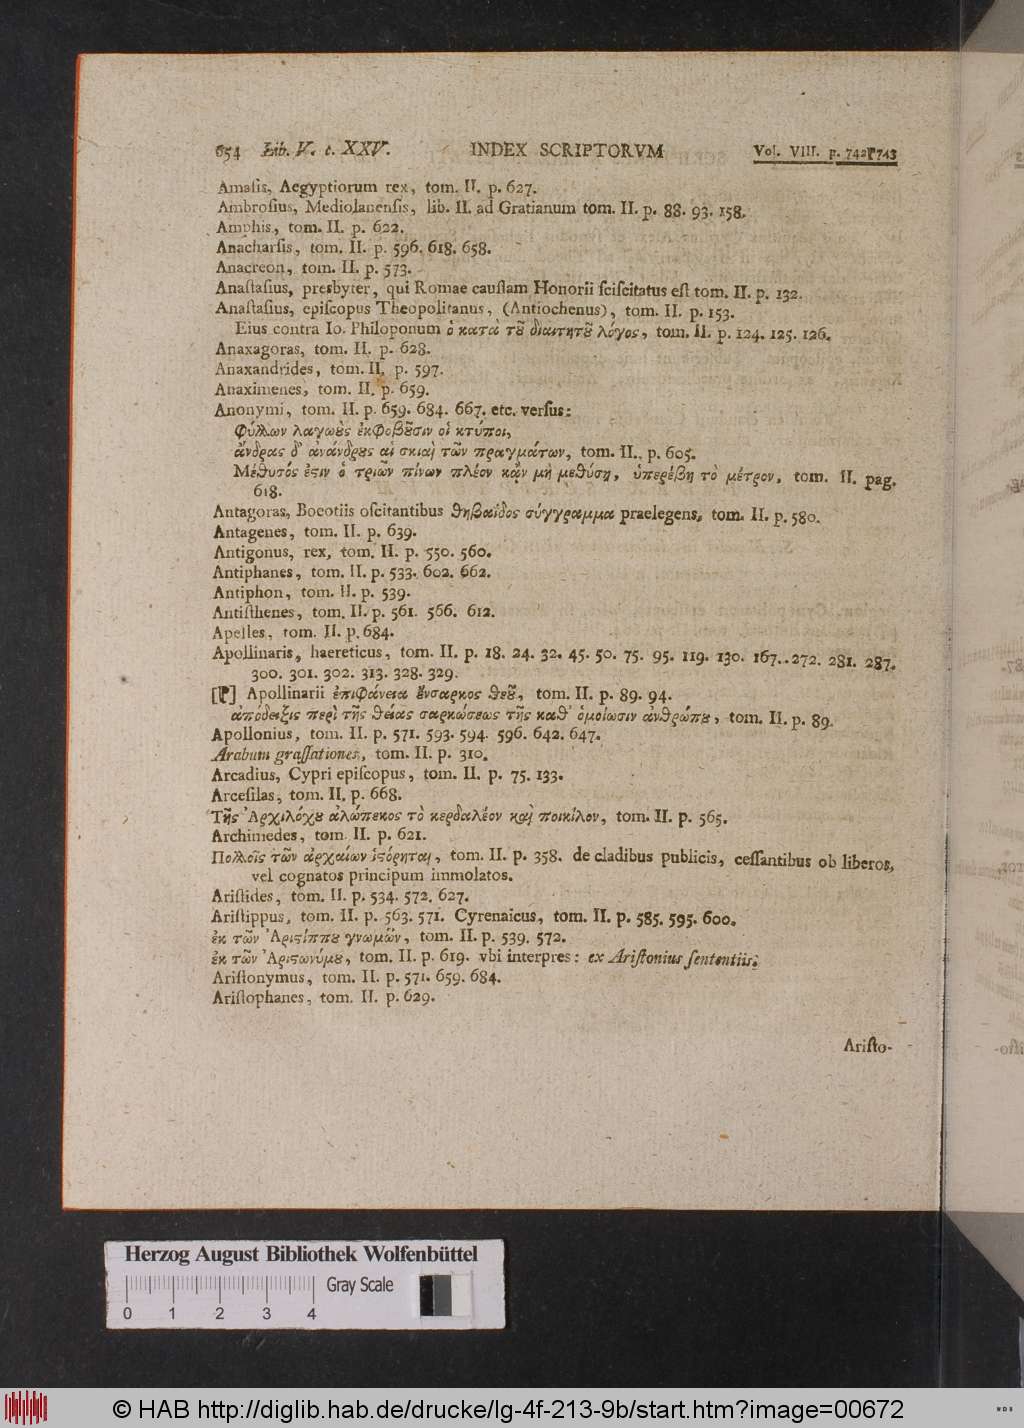 654 Lib. V. c. XXV. INDEX SCRIPTORVM Vol. VIII. p. 742 743
Amaſis, Aegyptiorum rex, tom. II. p. 627.
Ambroſius, Mediolanenſis, lib. II. ad Gratianum tom. II. p. 88. 93. 158.
Amphis, tom. II. p. 622.
Anacharſis, tom. II. p. 596. 618. 658.
Anacreon, tom. II. p. 573.
Anaſtaſius, presbyter, qui Romae cauſſam Honorii ſciſcitatus eſt tom. II. p. 132.
Anaſtaſius, epiſcopus Theopolitanus, (Antiochenus), tom. II. p. 153.
Eius contra Io. Philoponum ὁ κατὰ τȣ͂ διαιτητȣ͂ λόγος, tom. II. p. 124. 125. 126.
Anaxagoras, tom. II. p. 628.
Anaxandrides, tom. II. p. 597.
Anaximenes, tom. II. p. 659.
Anonymi, tom. II. p. 659. 684. 667. etc. verſus:
Φύλλων λαγωȣ̀ς ἐκφοβȣ͂σιν οἱ κτύποι,
ἄνδρας δ' ἀνάνδρȣς αἱ σκιαὶ τῶν πραγμάτων, tom. II. p. 605.
Μέθυσός ἐϛιν ὁ τριῶν πίνων πλέον κᾂν μὴ μεθύσῃ, ὑπερέβη τὸ μέτρον, tom. II. pag.
618.
Antagoras, Boeotiis oſcitantibus θηβαΐδος σύγγραμμα praelegens, tom. II. p. 580.
Antagenes, tom. II. p. 639.
Antigonus, rex, tom. II. p. 550. 560.
Antiphanes, tom. II. p. 533. 602. 662.
Antiphon, tom. II. p. 539.
Antiſthenes, tom. II. p. 561. 566. 612.
Apelles, tom. II. p. 684.
Apollinaris, haereticus, tom. II. p. 18. 24. 32. 45. 50. 75. 95. 119. 130. 167. . 272. 281. 287.
300. 301. 302. 313. 328. 329.
[] Apollinarii ἐπιφάνεια ἔνσαρκος θεȣ͂, tom. II. p. 89. 94.
ἀπόδειξις περὶ τῆς θείας σαρκώσεως τῆς καθ' ὁμοίωσιν ἀνθρώπȣ, tom. II. p. 89.
Apollonius, tom. II. p. 571. 593. 594. 596. 642. 647.
Arabum graſſationes, tom. II. p. 310.
Arcadius, Cypri epiſcopus, tom. II. p. 75. 133.
Arceſilas, tom. II. p. 668.
Τῆς Ἀρχιλόχȣ ἀλώπεκος τὸ κερδαλέον καὶ ποικίλον, tom. II. p. 565.
Archimedes, tom. II. p. 621.
Πολλοῖς τῶν ἀρχαίων ἱϛόρηται, tom. II. p. 358. de cladibus publicis, ceſſantibus ob liberos,
vel cognatos principum immolatos.
Ariſtides, tom. II. p. 534. 572. 627.
Ariſtippus, tom. II. p. 563. 571. Cyrenaicus, tom. II. p. 585. 595. 600.
ἐκ τῶν Ἀριϛίππȣ γνωμῶν, tom. II. p. 539. 572.
ἐκ τῶν Ἀριϛωνύμȣ, tom. II. p. 619. vbi interpres: ex Ariſtonius ſententiis.
Ariſtonymus, tom. II. p. 571. 659. 684.
Ariſtophanes, tom. II. p. 629.
Ariſto-
Herzog August Bibliothek Wolfenbüttel
Gray Scale
0 1 2 3 4
© HAB http://diglib.hab.de/drucke/lg-4f-213-9b/start.htm?image=00672